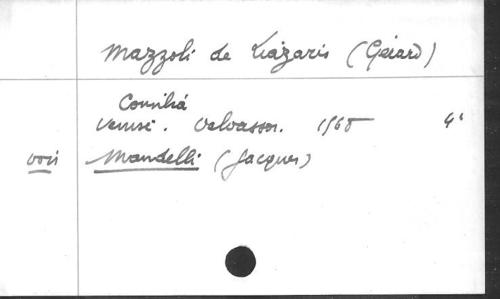 Mazzoli de Liazaris (Gérard)
Consilia
Venise. Valvassor. 4°
voir Mandelli (Jacques)